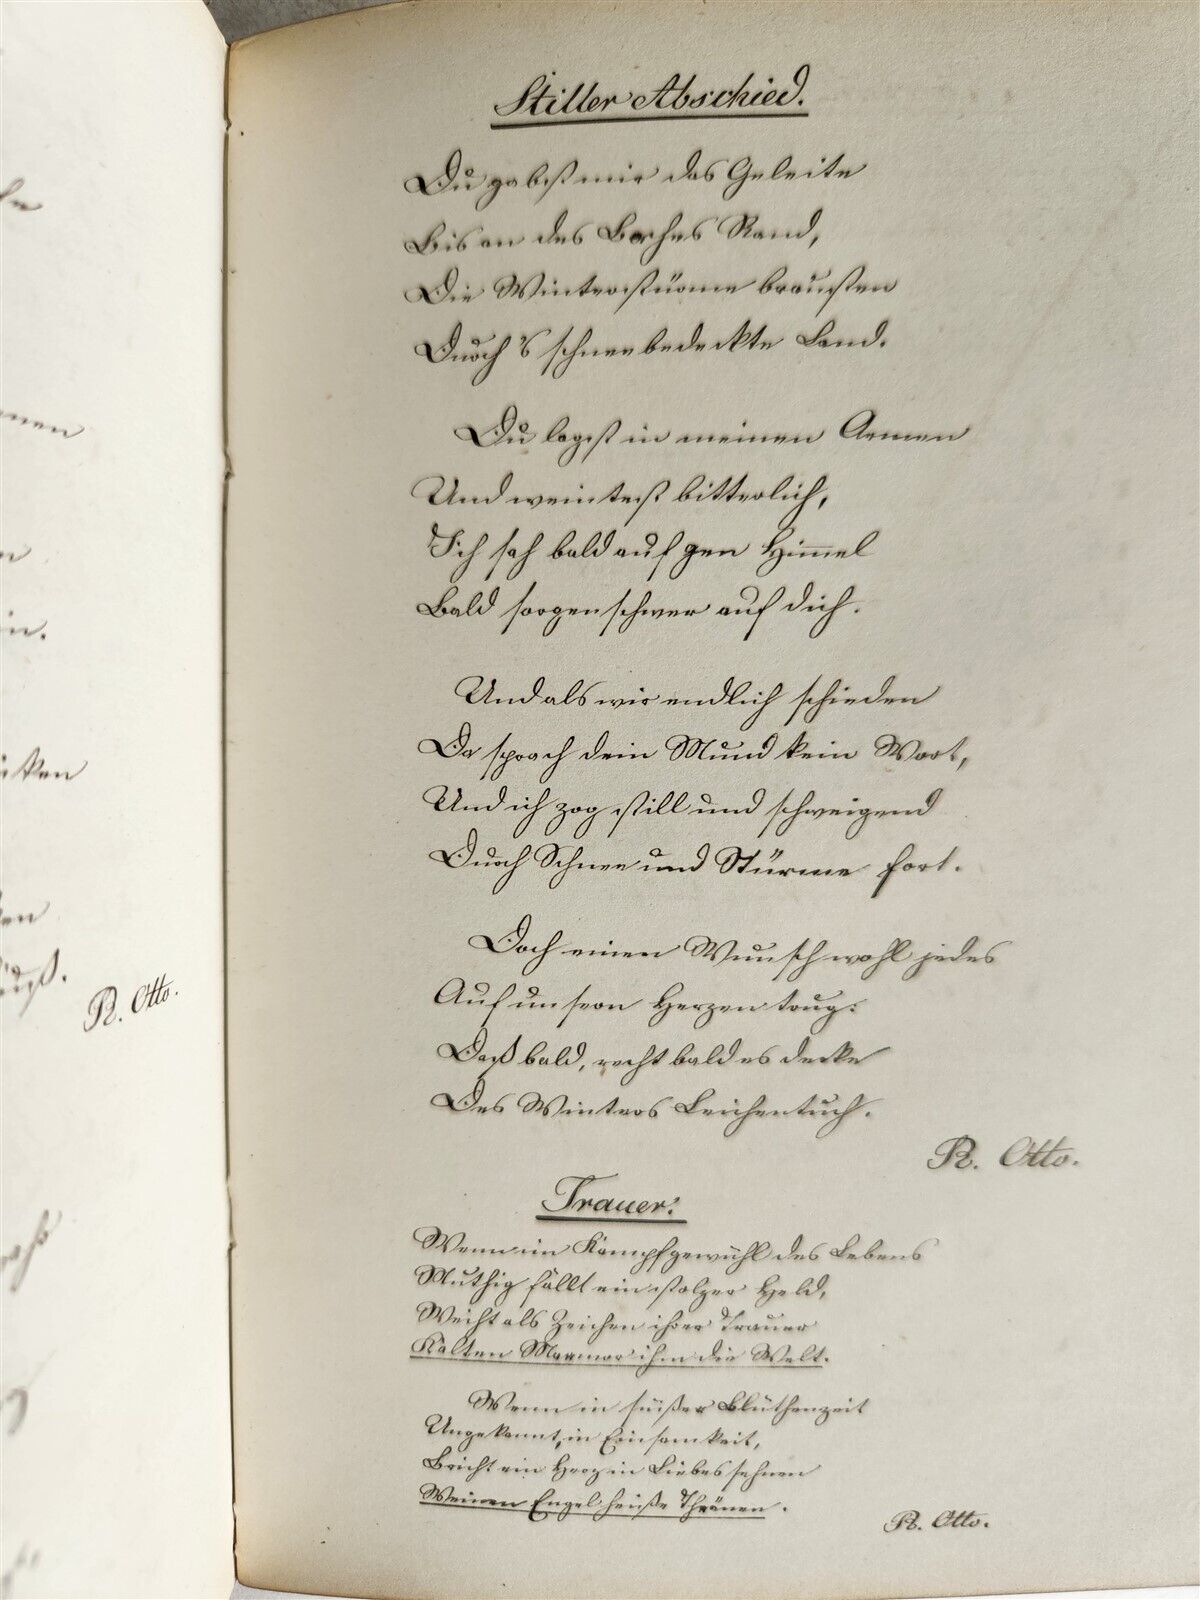 Stiller Abschied.
Du gabst mir das Geleite
Bis an des Baches Rand,
Die Winterstürme brausten
Durch's schneebedeckte Land.
Du lagst in meinen Armen
Und weintest bitterlich,
Ich sah bald auf gen Himmel
Bald sorgenschwer auf dich.
Und als wir endlich schieden
Da sprach dein Mund kein Wort,
Und ich zog still und schweigend
Durch Schnee und Stürme fort.
Doch einen Wunsch wohl jedes
Auf unsern Herzen trug:
Daß bald, recht bald es decke
Des Winters Leichentuch.
R. Otto.
Trauer.
Wenn im Kampfgewühl des Lebens
Muthig fällt ein stolzer Held,
Weiht als Zeichen ihrer Trauer
Kalten Marmor ihm die Welt.
Wenn in süßer Blüthenzeit
Ungekannt, in Einsamkeit,
Bricht ein Herz in Liebessehnen
Weinen Engel heiße Thränen.
R. Otto.
in.
R. Otto.